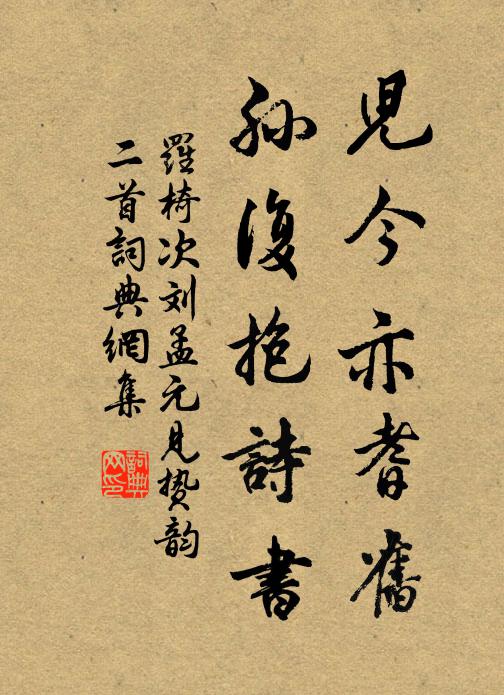 児今亦耆舊
孙復抱詩書
羅椅次刘孟元見贽韵
二首詞典網集
詞典网印